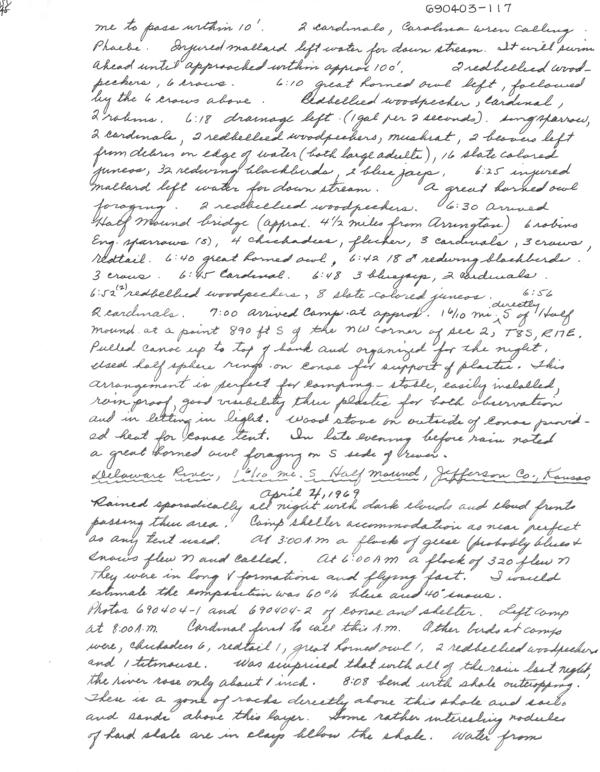 690403-117
me to pass within 10'. 2 cardinals, Carolina wren calling.
Phoebe. Injured mallard left water for down stream. It will swim
ahead until approached within approx 100'. 2 redbellied wood-
peckers, 6 crows. 6:10 great horned owl left, followed
by the 6 crows above. Redbellied woodpecker, cardinal,
2 robins. 6:18 drainage left. (1 gal per 2 seconds). song sparrow,
2 cardinals, 2 redbellied woodpeckers, muskrat, 2 beavers left
from debris on edge of water (both large adults), 16 slate colored
juncos, 32 redwing blackbirds, 2 blue jays. 6:25 injured
mallard left water for down stream. A great horned owl
foraging. 2 redbellied woodpeckers. 6:30 Arrived
Half Mound bridge (approx. 4 1/2 miles from Arrington) 6 robins
Eng. sparrows (8), 4 chickadees, flicker, 3 cardinals, 3 crows,
redtail. 6:40 great horned owl, 6:42 18 ♂ redwing blackbirds.
3 crows. 6:45 Cardinal. 6:48 3 bluejays, 2 cardinals.
6:52 (2) redbellied woodpeckers, 8 slate colored juncos. 6:56
2 cardinals. 7:00 arrived camp at approx. 1 6/10 mi. directly S of Half
Mound at a point 890 ft S of the NW corner of sec 2, T8S, R17E.
Pulled canoe up to top of bank and organized for the night.
Used half sphere rings on canoe for support of plastic. This
arrangement is perfect for camping - stable, easily installed,
rain proof, good visibility thru plastic for both observation
and in letting in light. Wood stove on outside of canoe provid-
ed heat for canoe tent. In late evening before rain noted
a great horned owl foraging on S side of river.
Delaware River, 1 6/10 mi. S Half Mound, Jefferson Co., Kansas
April 4, 1969
Rained sporadically all night with dark clouds and cloud fronts
passing thru area. Camp shelter accommodation as near perfect
as any tent used. At 3:00 AM a flock of geese (probably blues &
snows flew N and called. At 6:00 AM a flock of 320 flew N
They were in long V formations and flying fast. I would
estimate the composition was 60% blue and 40% snows.
Photos 690404-1 and 690404-2 of canoe and shelter. Left camp
at 8:00 A.M. Cardinal first to call this A.M. Other birds at camp
were, chickadees 6, redtail 1, great horned owl 1, 2 redbellied woodpeckers
and 1 titmouse. Was surprised that with all of the rain last night,
the river rose only about 1 inch. 8:08 bend with shale outcropping.
There is a zone of rocks directly above this shale and soils
and sands above this layer. Some rather interesting nodules
of hard shale are in clays below the shale. Water from